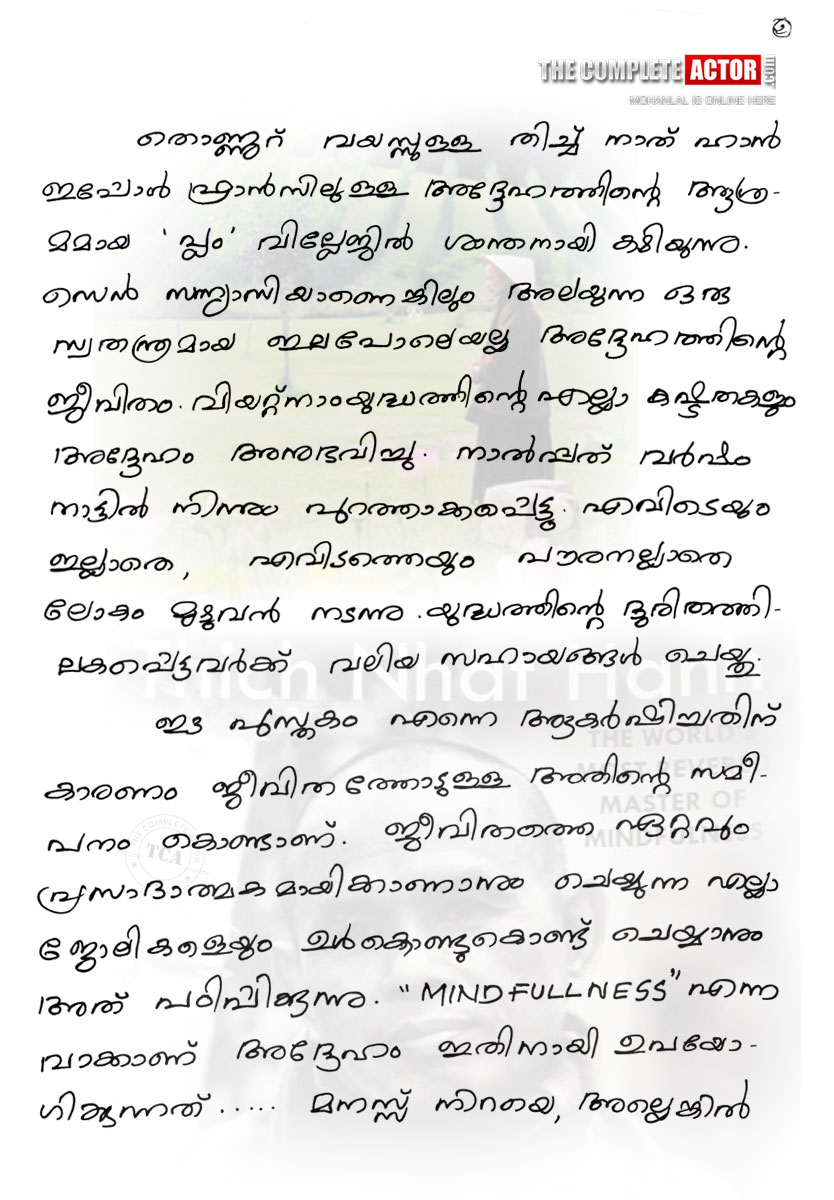 ൨
THE COMPLETE ACTOR .COM
MOHANLAL IS ONLINE HERE
തൊണ്ണൂറ് വയസ്സുള്ള തിച്ച് നാത് ഹാൻ
ഇപ്പോൾ ഫ്രാൻസിലുള്ള അദ്ദേഹത്തിന്റെ ആശ്ര-
മമായ 'പ്ലം' വില്ലേജിൽ ശാന്തനായി കഴിയുന്നു.
സെൻ സന്ന്യാസിയാണെങ്കിലും അലയുന്ന ഒരു
സ്വതന്ത്രമായ ഇലപോലെയല്ല അദ്ദേഹത്തിന്റെ
ജീവിതം. വിയറ്റ്നാംയുദ്ധത്തിന്റെ എല്ലാ കഷ്ടതകളും
അദ്ദേഹം അനുഭവിച്ചു. നാൽപ്പത് വർഷം
നാട്ടിൽ നിന്നും പുറത്താക്കപ്പെട്ടു. എവിടെയും
ഇല്ലാതെ, എവിടത്തെയും പൗരനല്ലാതെ
ലോകം മുഴുവൻ നടന്നു. യുദ്ധത്തിന്റെ ദുരിതത്തി-
ലകപ്പെട്ടവർക്ക് വലിയ സഹായങ്ങൾ ചെയ്തു.
ഈ പുസ്തകം എന്നെ ആകർഷിച്ചതിന്
കാരണം ജീവിതത്തോടുള്ള അതിന്റെ സമീ-
പനം കൊണ്ടാണ്. ജീവിതത്തെ ഏറ്റവും
പ്രസാദാത്മകമായികാണാനും ചെയ്യുന്ന എല്ലാ
ജോലികളെയും ഉൾക്കൊണ്ടുകൊണ്ട് ചെയ്യാനും
അത് പഠിപ്പിക്കുന്നു. "MINDFULLNESS" എന്ന
വാക്കാണ് അദ്ദേഹം ഇതിനായി ഉപയോ-
ഗിക്കുന്നത്..... മനസ്സ് നിറയെ, അല്ലെങ്കിൽ
Thich Nhat Hanh
THE WORLD'S
MOST REVERED
MASTER OF
MINDFULNESS
THE COMPLETE ACTOR
TCA